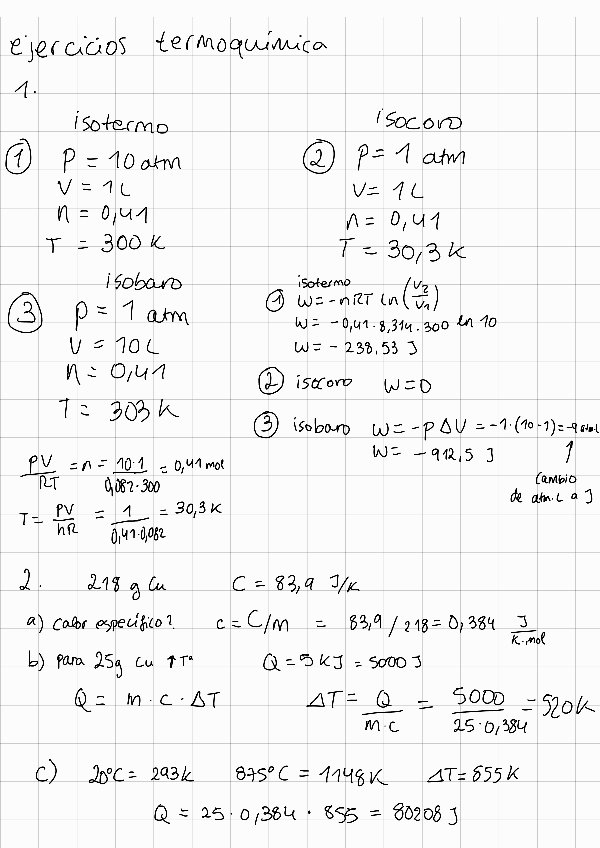 ejercicios termoquímica
1.
isotermo
① P = 10 atm
V = 1 L
n = 0,41
T = 300 K
isocoro
② P = 1 atm
V = 1 L
n = 0,41
T = 30,3 K
isobaro
③ P = 1 atm
V = 10 L
n = 0,41
T = 303 K
isotermo
① W = -nRT ln (V2/V1)
W = -0,41·8,314·300 ln 10
W = -238,53 J
② isocoro W=0
③ isobaro W = -P ΔV = -1·(10-1) = -9 atm.L
W = -912,5 J
cambio
de atm.L a J
PV/RT = n = 10·1/0,082·300 = 0,41 mol
T = PV/nR = 1/0,41·0,082 = 30,3 K
2. 218 g Cu C = 83,9 J/K
a) calor específico? c = C/m = 83,9 / 218 = 0,384 J/K·mol
b) para 25g Cu ↑Tª Q = 5 KJ = 5000 J
Q = m · c · ΔT ΔT = Q/m·c = 5000/25·0,384 = 520 K
c) 20°C = 293 K 875°C = 1148 K ΔT = 855 K
Q = 25 · 0,384 · 855 = 80208 J